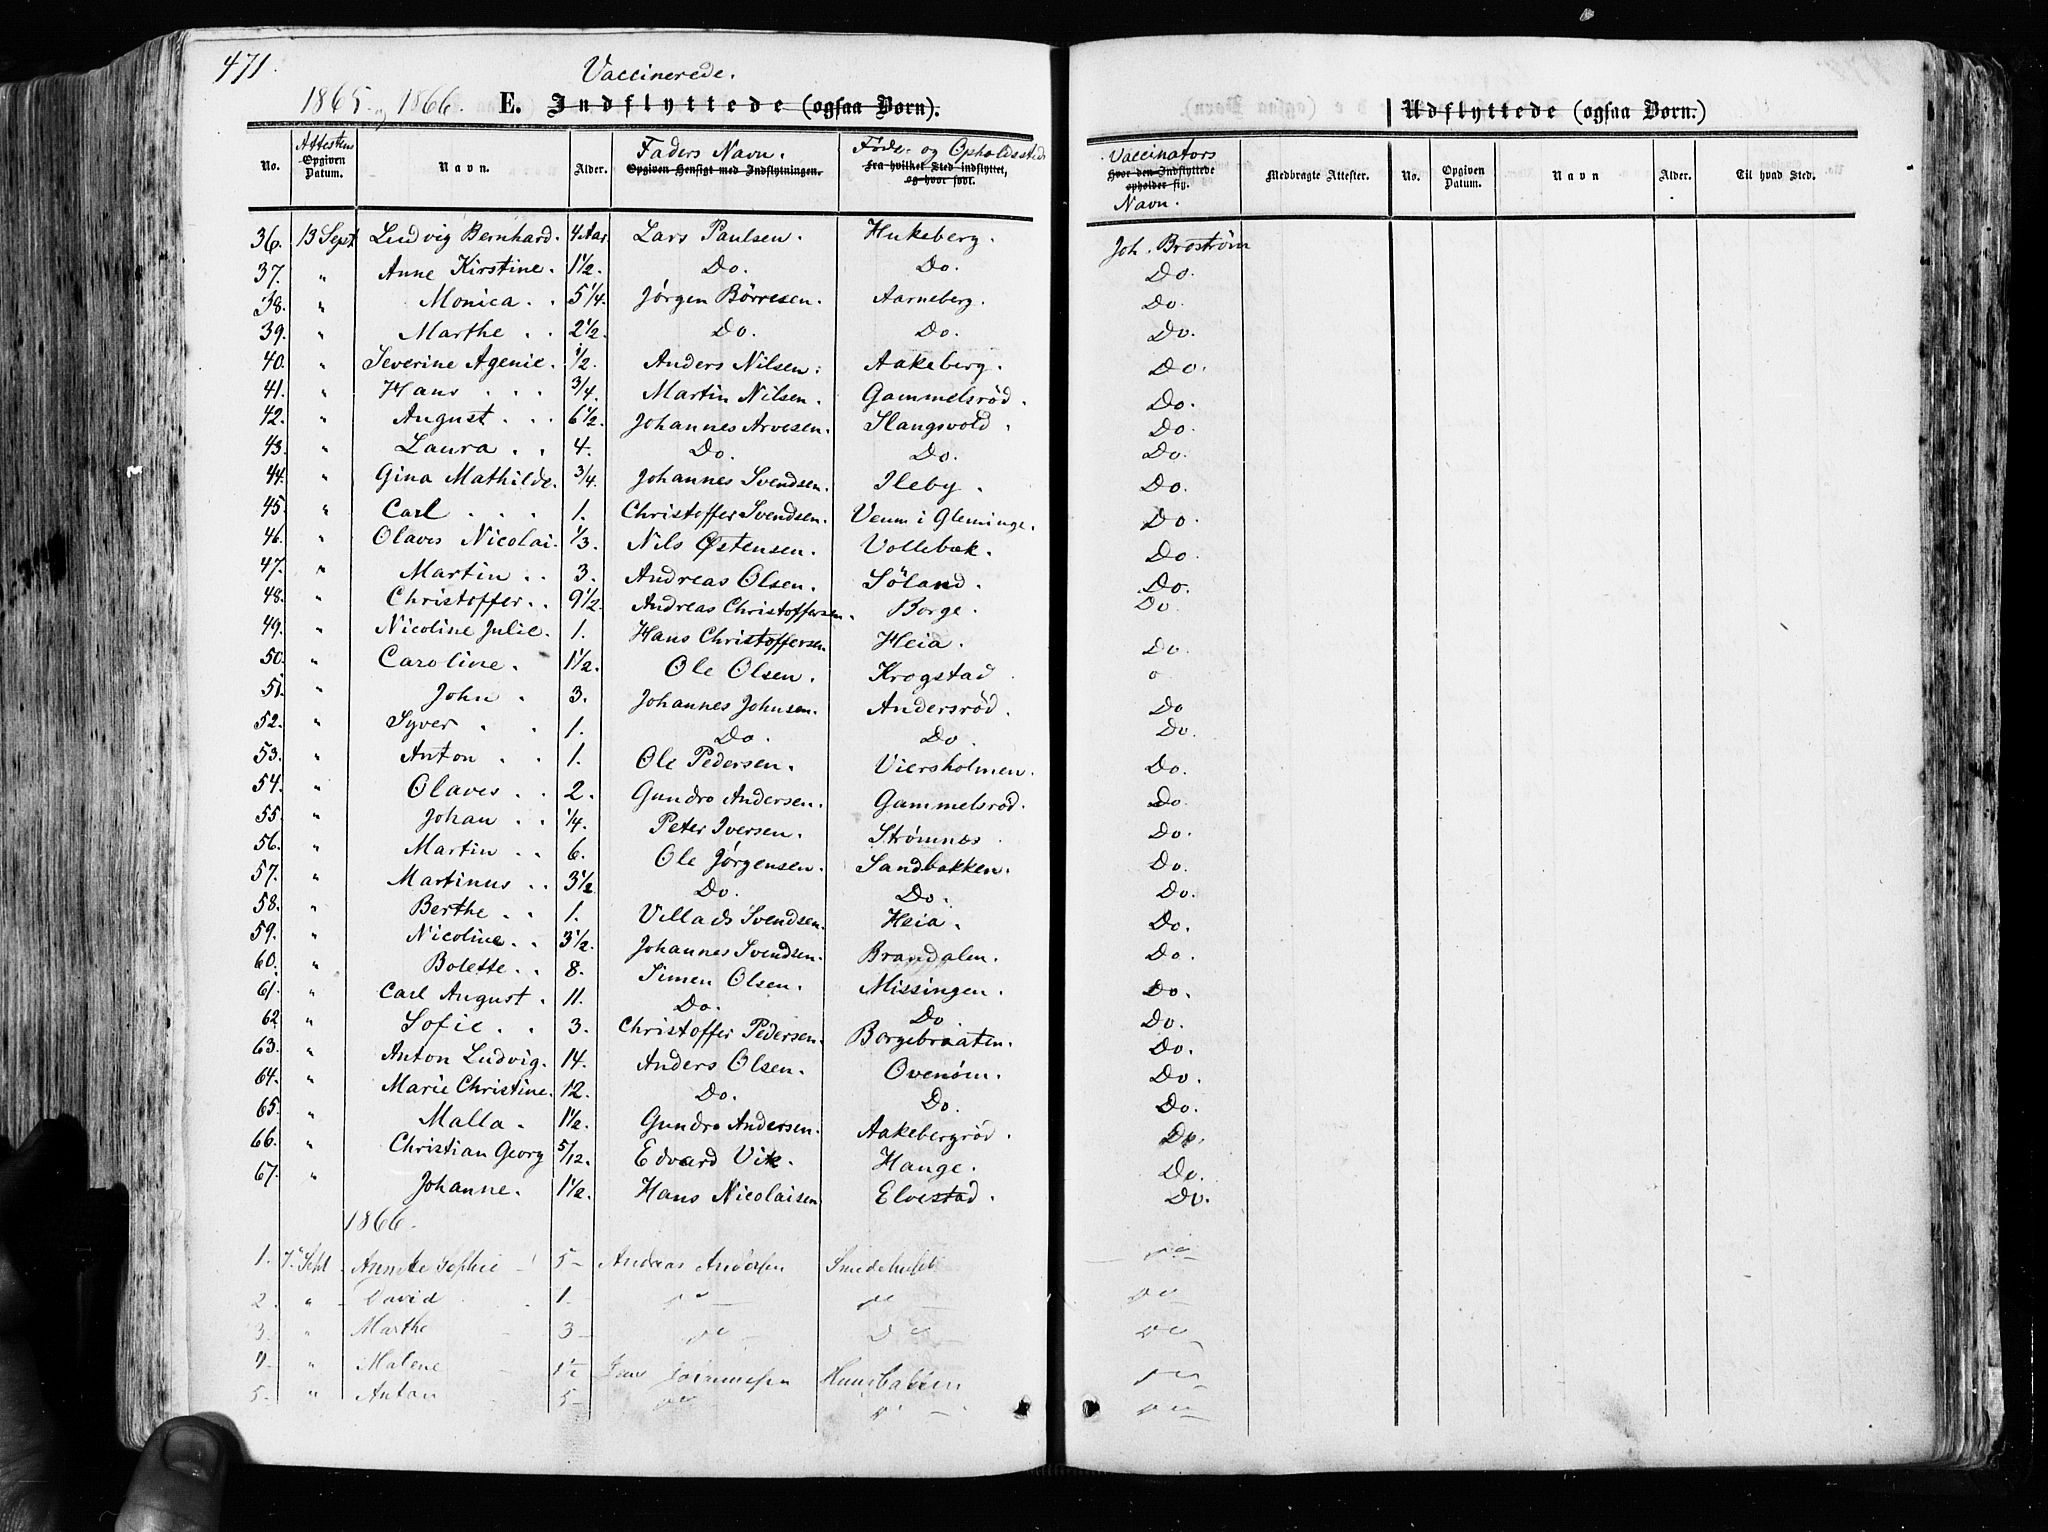 471.
Vaccinerede.
1865 og 1866. E. Indflyttede (ogsaa Børn). Udflyttede (ogsaa Børn.)
No. Attestens Opgiven Datum. Navn. Alder. Faders Navn. Opgiven Hensigt med Indflytningen. Føde- og Opholdssted Fra hvilket Sted indflyttet, og hvor født. Vaccinators Hvor den Indflyttede opholder sig. Navn. Medbragte Attester. No. Opgiven Datum. Navn Alder. Til hvad Sted.
36. 13 Sept Ludvig Bernhard. 4 Aar. Lars Paulsen. Hukeberg. Joh. Broström
37. " Anne Kirstine. 1½. Do. Do. Do.
38. " Monica . . 5¼. Jørgen Börresen. Aarneberg. Do.
39. " Marthe . . 2½. Do. Do. Do.
40. " Severine Agenie. ½. Anders Nilsen. Aakeberg. Do.
41. " Hans . . . ¾. Martin Nilsen. Gammelsröd. Do.
42. " August . . . 6½. Johannes Arvesen. Slangsvold. Do.
43. " Laura . . 4. Do. Do. Do.
44. " Gina Mathilde. ¾. Johannes Svendsen. Ileby. Do.
45. " Carl . . . 1. Christoffer Svendsen. Veum i Gleminge. Do.
46. " Olaves Nicolai. ⅓. Nils Østensen. Vollebæk. Do
47. " Martin . . 3. Andreas Olsen. Söland. Do.
48. " Christoffer . . 9½. Andreas Christoffersen. Borge. Do
49. " Nicoline Julie. 1. Hans Christoffersen Heia. Do.
50. " Caroline. 1½. Ole Olsen. Krogstad o
51. " John . 3. Johannes Johnsen. Andersröd. Do
52. " Syver . . 1. Do. Do. Do.
53. " Anton . . 1. Ole Pedersen. Viersholmen. Do.
54. " Olaves . . 2. Gundro Andersen. Gammelsröd. Do.
55. " Johan . . ¼. Peter Iversen. Strömnæs Do.
56. " Martin . . 6. Ole Jørgensen. Sandbakken. Do.
57. " Martinus . . 3½. Do. Do. Do.
58. " Berthe . . 1. Villads Svendsen. Heia. Do.
59. " Nicoline . . 3½. Johannes Svendsen. Brandalen. Do.
60. " Bolette . . 8. Simen Olsen. Missingen. Do.
61. " Carl August . 11. Do. Do. Do.
62 " Sofie . . 3. Christoffer Pedersen. Borgebraaten. Do.
63. " Anton Ludvig. 14. Anders Olsen. Ovenöm. Do.
64. " Marie Christine. 12. Do. Do. Do.
65. " Malla . 1½. Gundro Andersen. Aakebergröd. Do.
66. " Christian Georg 5/12. Edvard Vik. Hauge. Do.
67. " Johanne. 1½. Hans Nicolaisen Elvestad. Do.
1866.
1. 7 Sept Sophie 5 Andreas Andersen Smedehuset do
2. " David 1. do do do
3. " Marthe 3 do do do
4. " Malene do
5. " Anton 5 do do do